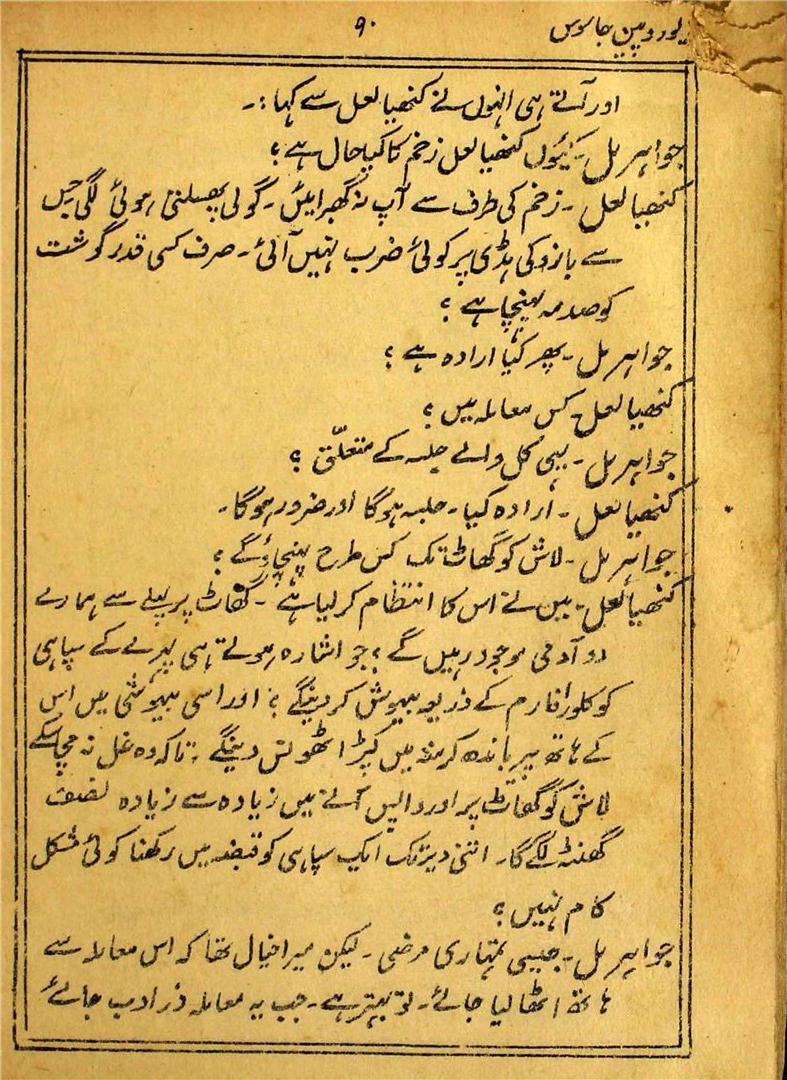 یوروپین جاسوس ۹۰
اور آتے ہی انہوں نے کنھیالعل سے کہا:۔
جواہر مل۔ کیوں کنھیالعل زخم کا کیا حال ہے؟
کنھیالعل۔ زخم کی طرف سے آپ نہ گھبرائیں۔ گولی پھسلتی ہوئی لگی جس
سے بازو کی ہڈی پر کوئی ضرب نہیں آئی۔ صرف کسی قدر گوشت
کو صدمہ پہنچا ہے؟
جواہر مل۔ پھر کیا ارادہ ہے؟
کنھیالعل۔ کس معاملہ میں؟
جواہر مل۔ یہی کل والے جلسہ کے متعلّق؟
کنھیالعل۔ ارادہ کیا۔ جلسہ ہوگا اور ضرور ہوگا۔
جواہر مل۔ لاش کو گھاٹ تک کس طرح پہنچاؤگے؟
کنھیالعل۔ میں نے اس کا انتظام کر لیا ہے۔ گھاٹ پر پہلے سے ہمارے
دو آدمی موجود رہیں گے؟ جو اشارہ ہوتے ہی پہرے کے سپاہی
کو کلورافارم کے ذریعہ بیہوش کر دینگے؟ اور اسی بیہوشی میں اس
کے ہاتھ پیر باندھ کر منہ میں کپڑا ٹھونس دینگے؟ تاکہ وہ غل نہ مچا سکے
لاش کو گھاٹ پر اور واپس آنے میں زیادہ سے زیادہ نصف
گھنٹہ لگے گا۔ اتنی دیر تک ایک سپاہی کو قبضہ میں رکھنا کوئی مشکل
کام نہیں؟
جواہر مل۔ جیسی تمہاری مرضی۔ لیکن میرا خیال تھا کہ اس معاملہ سے
ہاتھ اٹھا لیا جائے۔ تو بہتر ہے۔ جب یہ معاملہ ذرا دب جائے